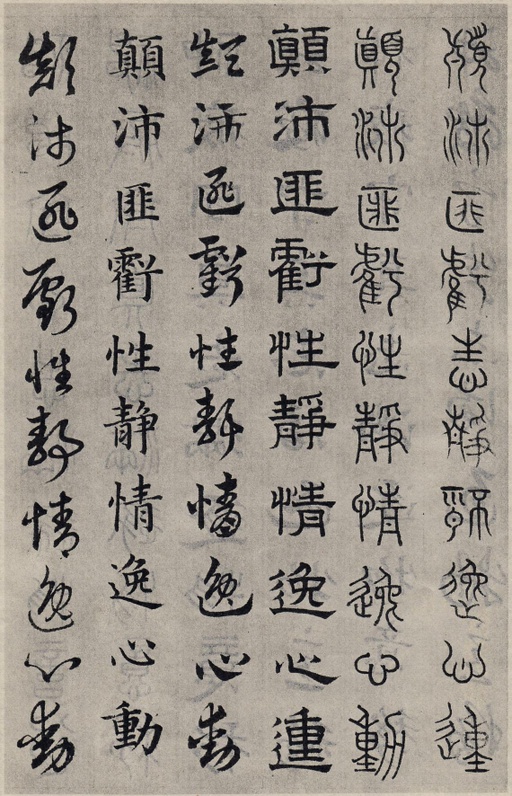 顛沛匪虧志靜情逸心運
顛沛匪虧性靜情逸心動
顛沛匪虧性靜情逸心運
顛沛匪虧性靜情逸心動
顛沛匪虧性静情逸心動
顛沛匪虧性靜情逸心動